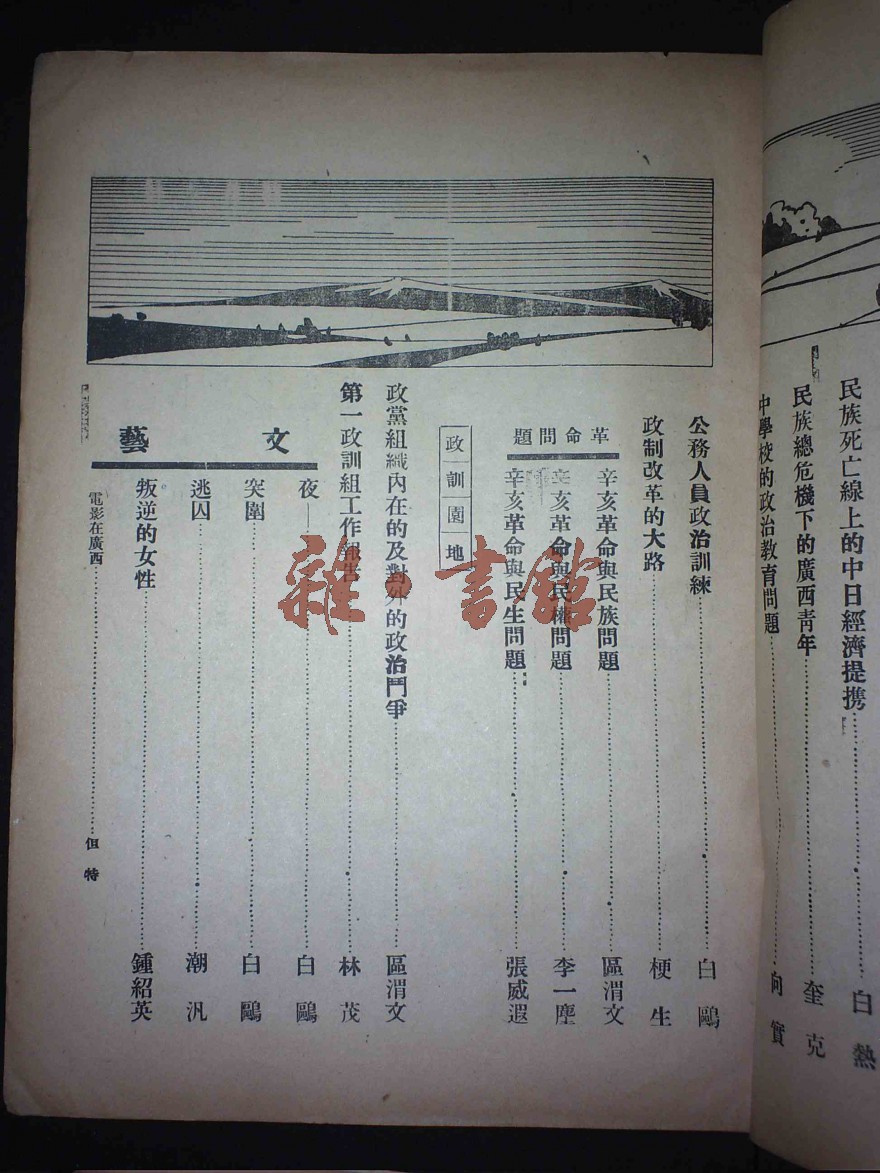 民族死亡線上的中日經濟提携 白熱
民族總危機下的廣西青年 奎克
中學校的政治教育問題 向實
公務人員政治訓練 白鷗
政制改革的大路 梗生
革命問題
辛亥革命與民族問題 區渭文
辛亥革命與民權問題 李一塵
辛亥革命與民生問題 張威遐
政訓園地
政黨組織內在的及對外的政治鬥爭 區渭文
第一政訓組工作報告 林茂
文藝
夜—— 白鷗
突圍 白鷗
逃囚 潮汎
叛逆的女性 鍾紹英
電影在廣西 但特
雜·書館